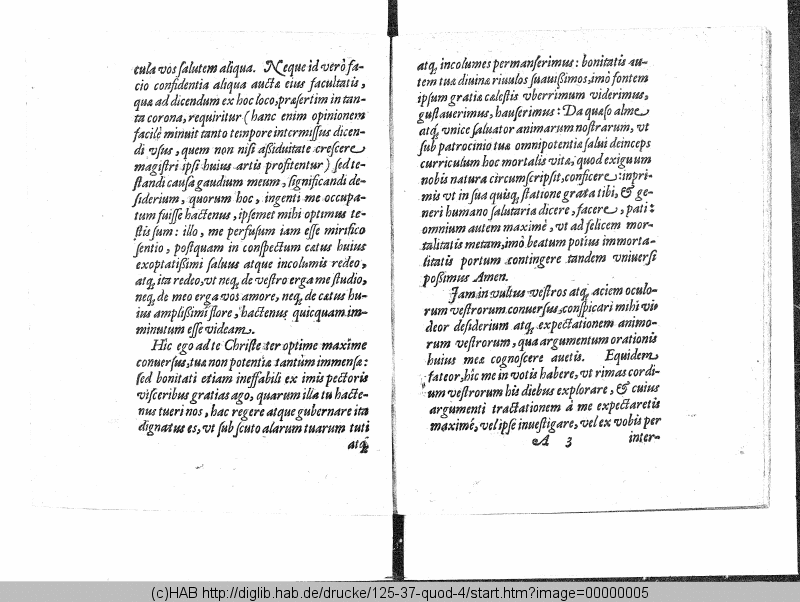 cula vos ſalutem aliqua. Neque id verò fa-
cio confidentia aliqua auctæ eius facultatis,
quæ ad dicendum ex hoc loco, præſertim in tan-
ta corona, requiritur (hanc enim opinionem
facilè minuit tanto tempore intermiſſus dicen-
di vſus, quem non niſi aßiduitate creſcere
magiſtri ipſi huius artis profitentur) ſed te-
ſtandi cauſa gaudium meum, ſignificandi de-
ſiderium, quorum hoc, ingenti me occupa-
tum fuiſſe hactenus, ipſemet mihi optimus te-
ſtis ſum: illo, me perfuſum iam eſſe mirifico
ſentio, poſtquam in conſpectum cætus huius
exoptatißimi ſaluus atque incolumis redeo,
atq, ita redeo, vt neq, de veſtro erga me ſtudio,
neq, de meo erga vos amore, neq, de cætus hu-
ius amplißimi flore, hactenus quicquam im-
minutum eſſe videam.
Hic ego ad te Chriſte ter optime maxime
conuerſus, tuæ non potentiæ tantùm immenſæ:
ſed bonitati etiam ineffabili ex imis pectoris
viſceribus gratias ago, quarum illa tu hacte-
nus tueri nos, hac regere atque gubernare ita
dignatus es, vt ſub ſcuto alarum tuarum tuti
atq,
atq, incolumes permanſerimus: bonitatis au-
tem tuæ diuinæ riuulos ſuauißimos, imò fontem
ipſum gratiæ cæleſtis vberrimum viderimus,
guſtauerimus, hauſerimus: Da quæſo alme
atq, vnice ſaluator animarum noſtrarum, vt
ſub patrocinio tuæ omnipotentiæ ſalui deinceps
curriculum hoc mortalis vitæ, quod exiguum
nobis natura circumſcripſit, conficere: inpri-
mis vt in ſua quiſq, ſtatione grata tibi, & ge-
neri humano ſalutaria dicere, facere, pati:
omnium autem maximè, vt ad felicem mor-
talitatis metam, imò beatum potius immorta-
litatis portum contingere tandem vniuerſi
poßimus Amen.
Jam in vultus veſtros atq, aciem oculo-
rum veſtrorum conuerſus, conſpicari mihi vi-
deor deſiderium atq, expectationem animo-
rum veſtrorum, qua argumentum orationis
huius meæ cognoſcere auetis. Equidem
fateor, hic me in votis habere, vt rimas cordi-
um veſtrorum his diebus explorare, & cuius
argumenti tractationem à me expectaretis
maximè, vel ipſe inueſtigare, vel ex vobis per
A 3 inter-
(c)HAB http://diglib.hab.de/drucke/125-37-quod-4/start.htm?image=00000005